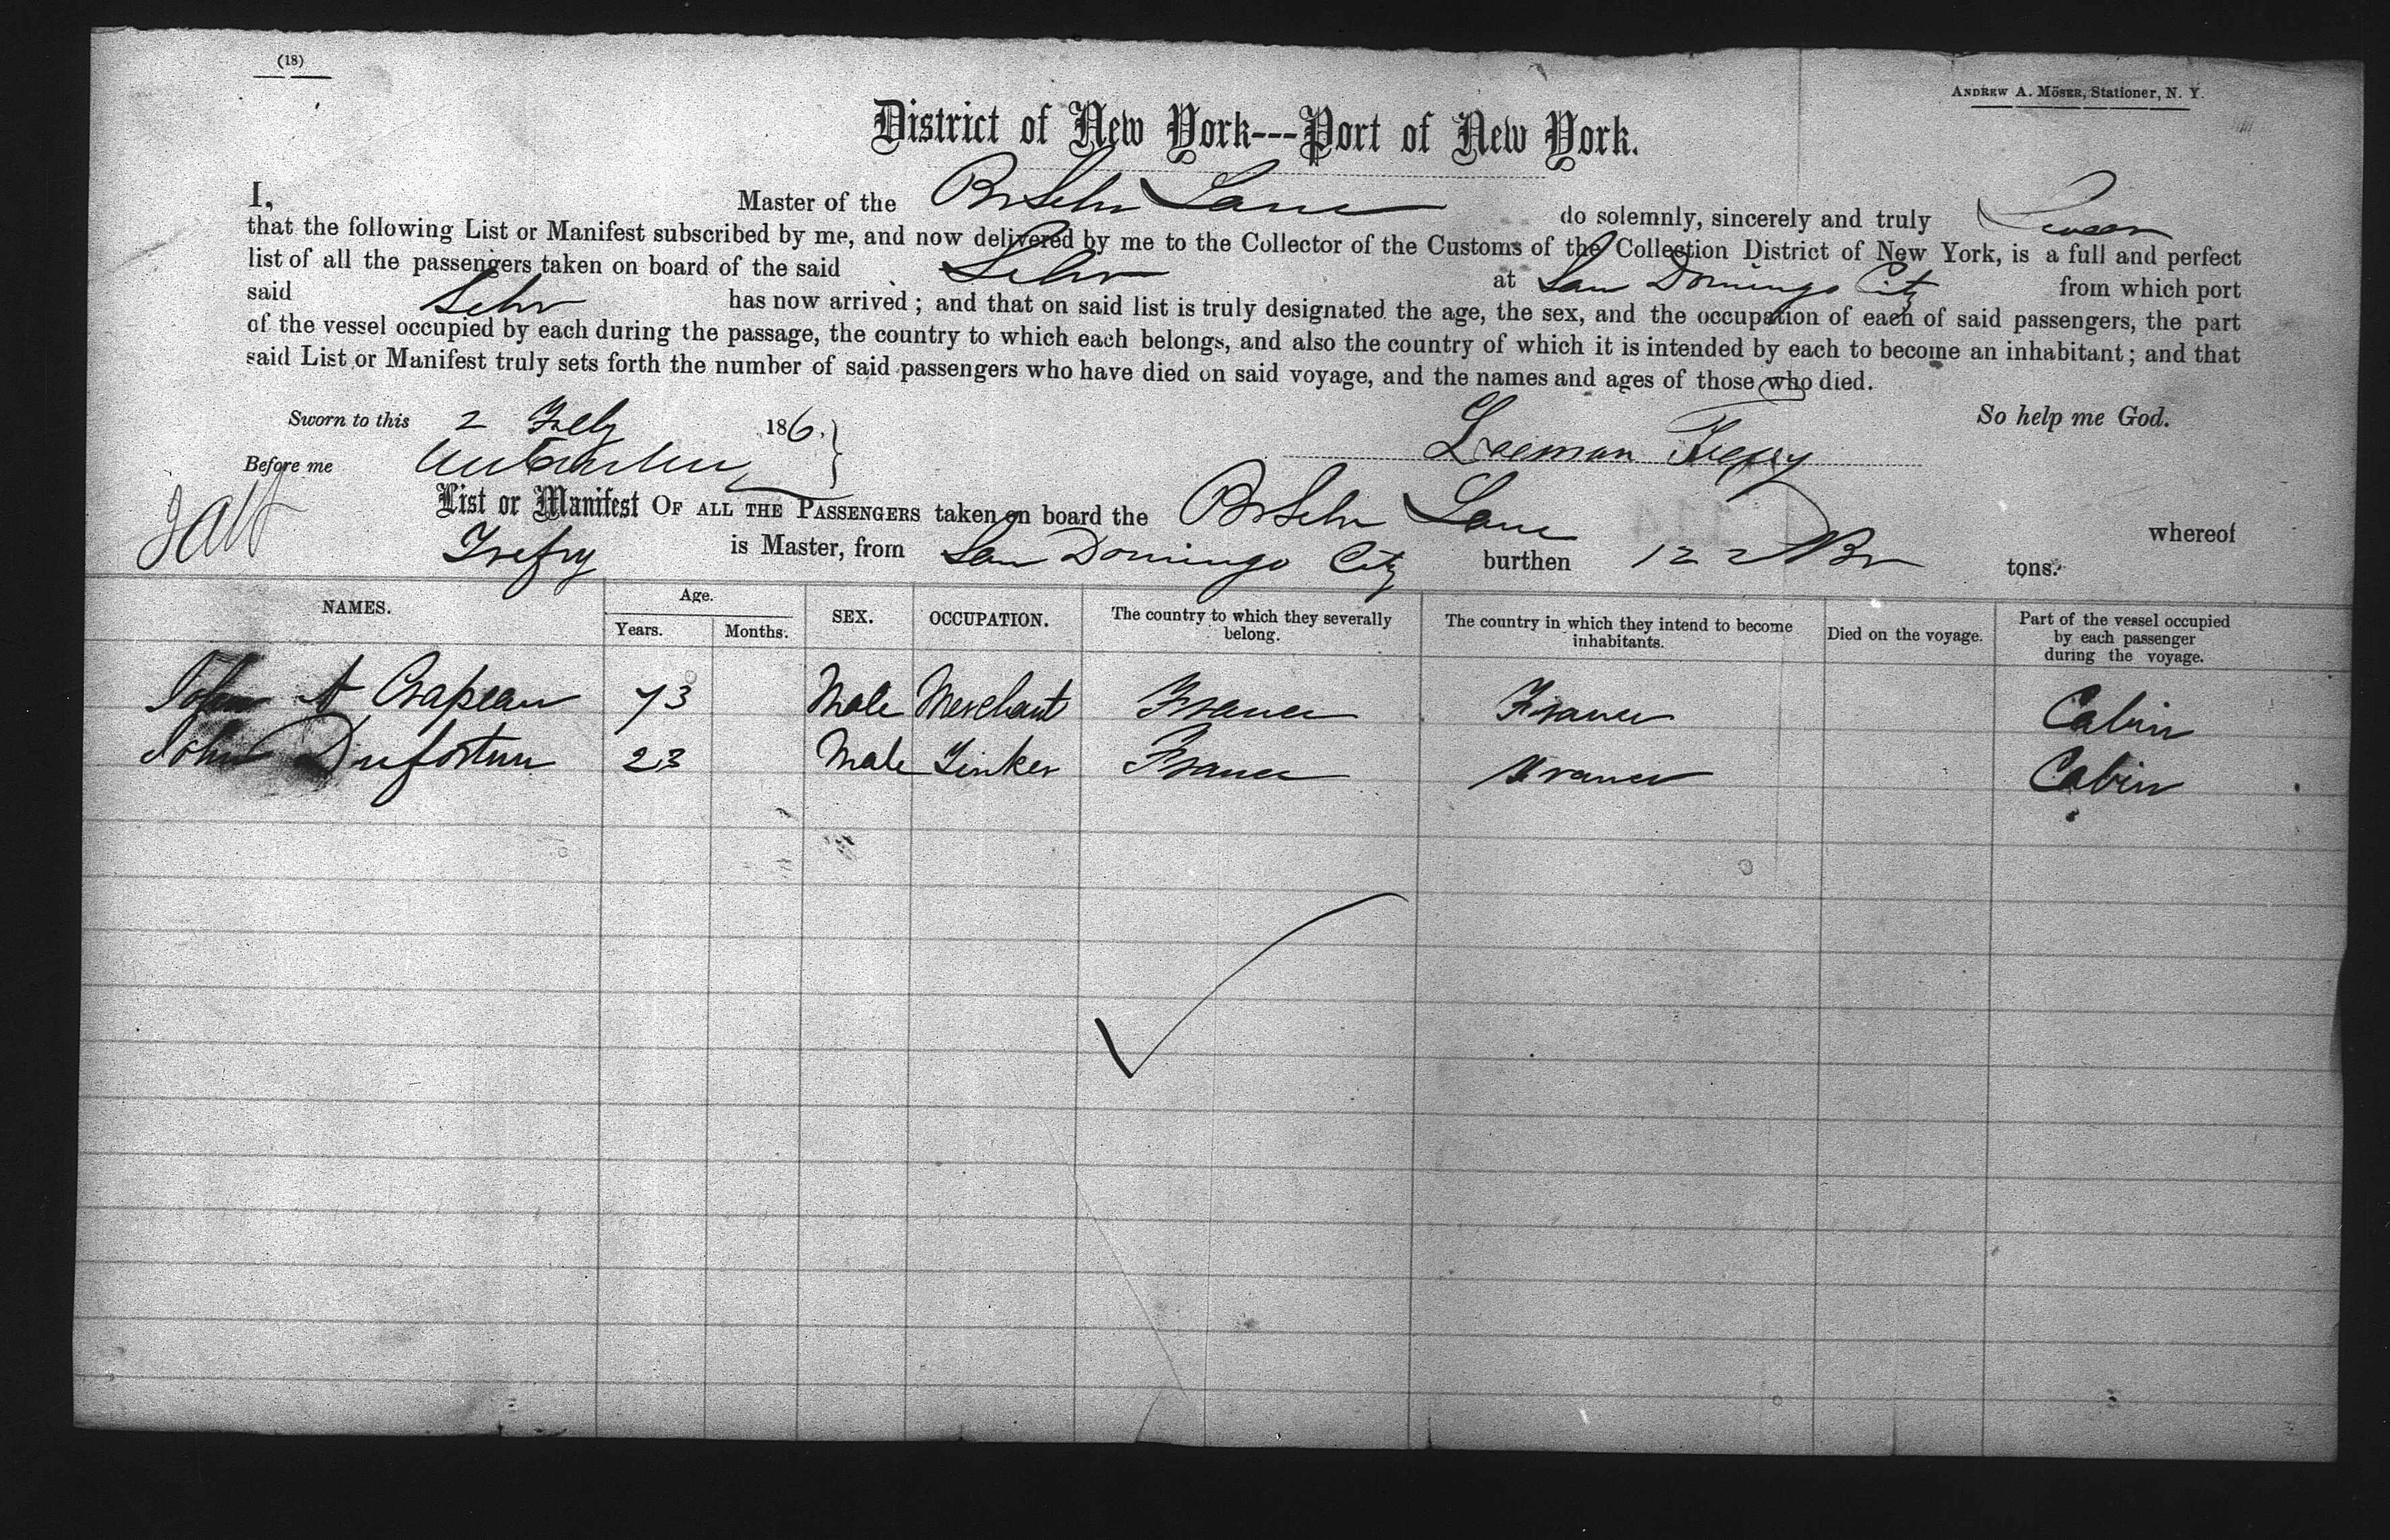 (18)
ANDREW A. MÖSER, Stationer, N. Y.
District of New York---Port of New York.
I, Master of the Br Schr Lane do solemnly, sincerely and truly Swear
that the following List or Manifest subscribed by me, and now delivered by me to the Collector of the Customs of the Collection District of New York, is a full and perfect
list of all the passengers taken on board of the said Schr at San Domingo City from which port
said Schr has now arrived; and that on said list is truly designated the age, the sex, and the occupation of each of said passengers, the part
of the vessel occupied by each during the passage, the country to which each belongs, and also the country of which it is intended by each to become an inhabitant; and that
said List or Manifest truly sets forth the number of said passengers who have died on said voyage, and the names and ages of those who died.
So help me God.
Sworn to this 2 Feby 186.
Before me
Leeman Trefry
List or Manifest OF ALL THE PASSENGERS taken on board the Br Schr Lane whereof
Trefry is Master, from San Domingo City burthen 122 Br tons.
NAMES. Age. Years. Months. SEX. OCCUPATION. The country to which they severally belong. The country in which they intend to become inhabitants. Died on the voyage. Part of the vessel occupied by each passenger during the voyage.
John A Crapeau 73 Male Merchant France France Cabin
John Dufortun 23 Male Tinker France France Cabin